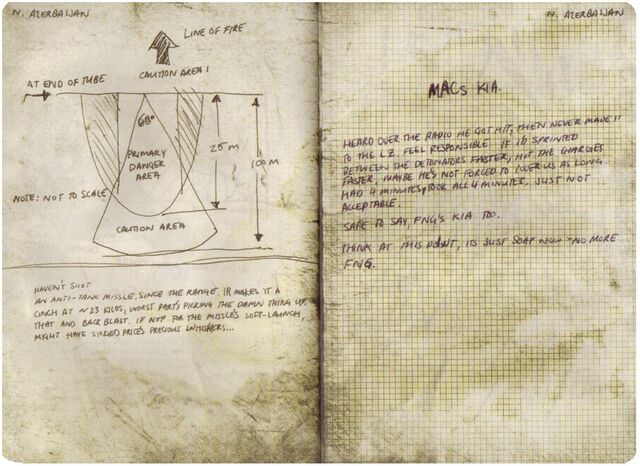 N. AZERBAIJAN
LINE OF FIRE
CAUTION AREA 1
AT END OF TUBE
60°
PRIMARY
DANGER
AREA
25 M
100 M
NOTE: NOT TO SCALE
CAUTION AREA
HAVEN'T SHOT
AN ANTI-TANK MISSLE, SINCE THE RANGE. IR MAKES IT A
CINCH AT ~23 KILOS, WORST PART'S PICKING THE DAMN THING UP,
THAT AND BACK BLAST. IF NOT FOR THE MISSLE'S SOFT-LAUNCH,
MIGHT HAVE SINGED PRICE'S PRECIOUS WHISKERS...
N. AZERBAIJAN
MACS KIA.
HEARD OVER THE RADIO HE GOT HIT, THEN NEVER MADE IT
TO THE LZ. FEEL RESPONSIBLE. IF I'D SPRINTED
BETWEEN THE DETONATORS FASTER, HIT THE CHARGES
FASTER, MAYBE HE'S NOT FORCED TO COVER US AS LONG.
HAD 4 MINUTES, TOOK ALL 4 MINUTES. JUST NOT
ACCEPTABLE.
SAFE TO SAY, FNG'S KIA TOO.
THINK AT THIS POINT, ITS JUST SOAP NOW - NO MORE
FNG.